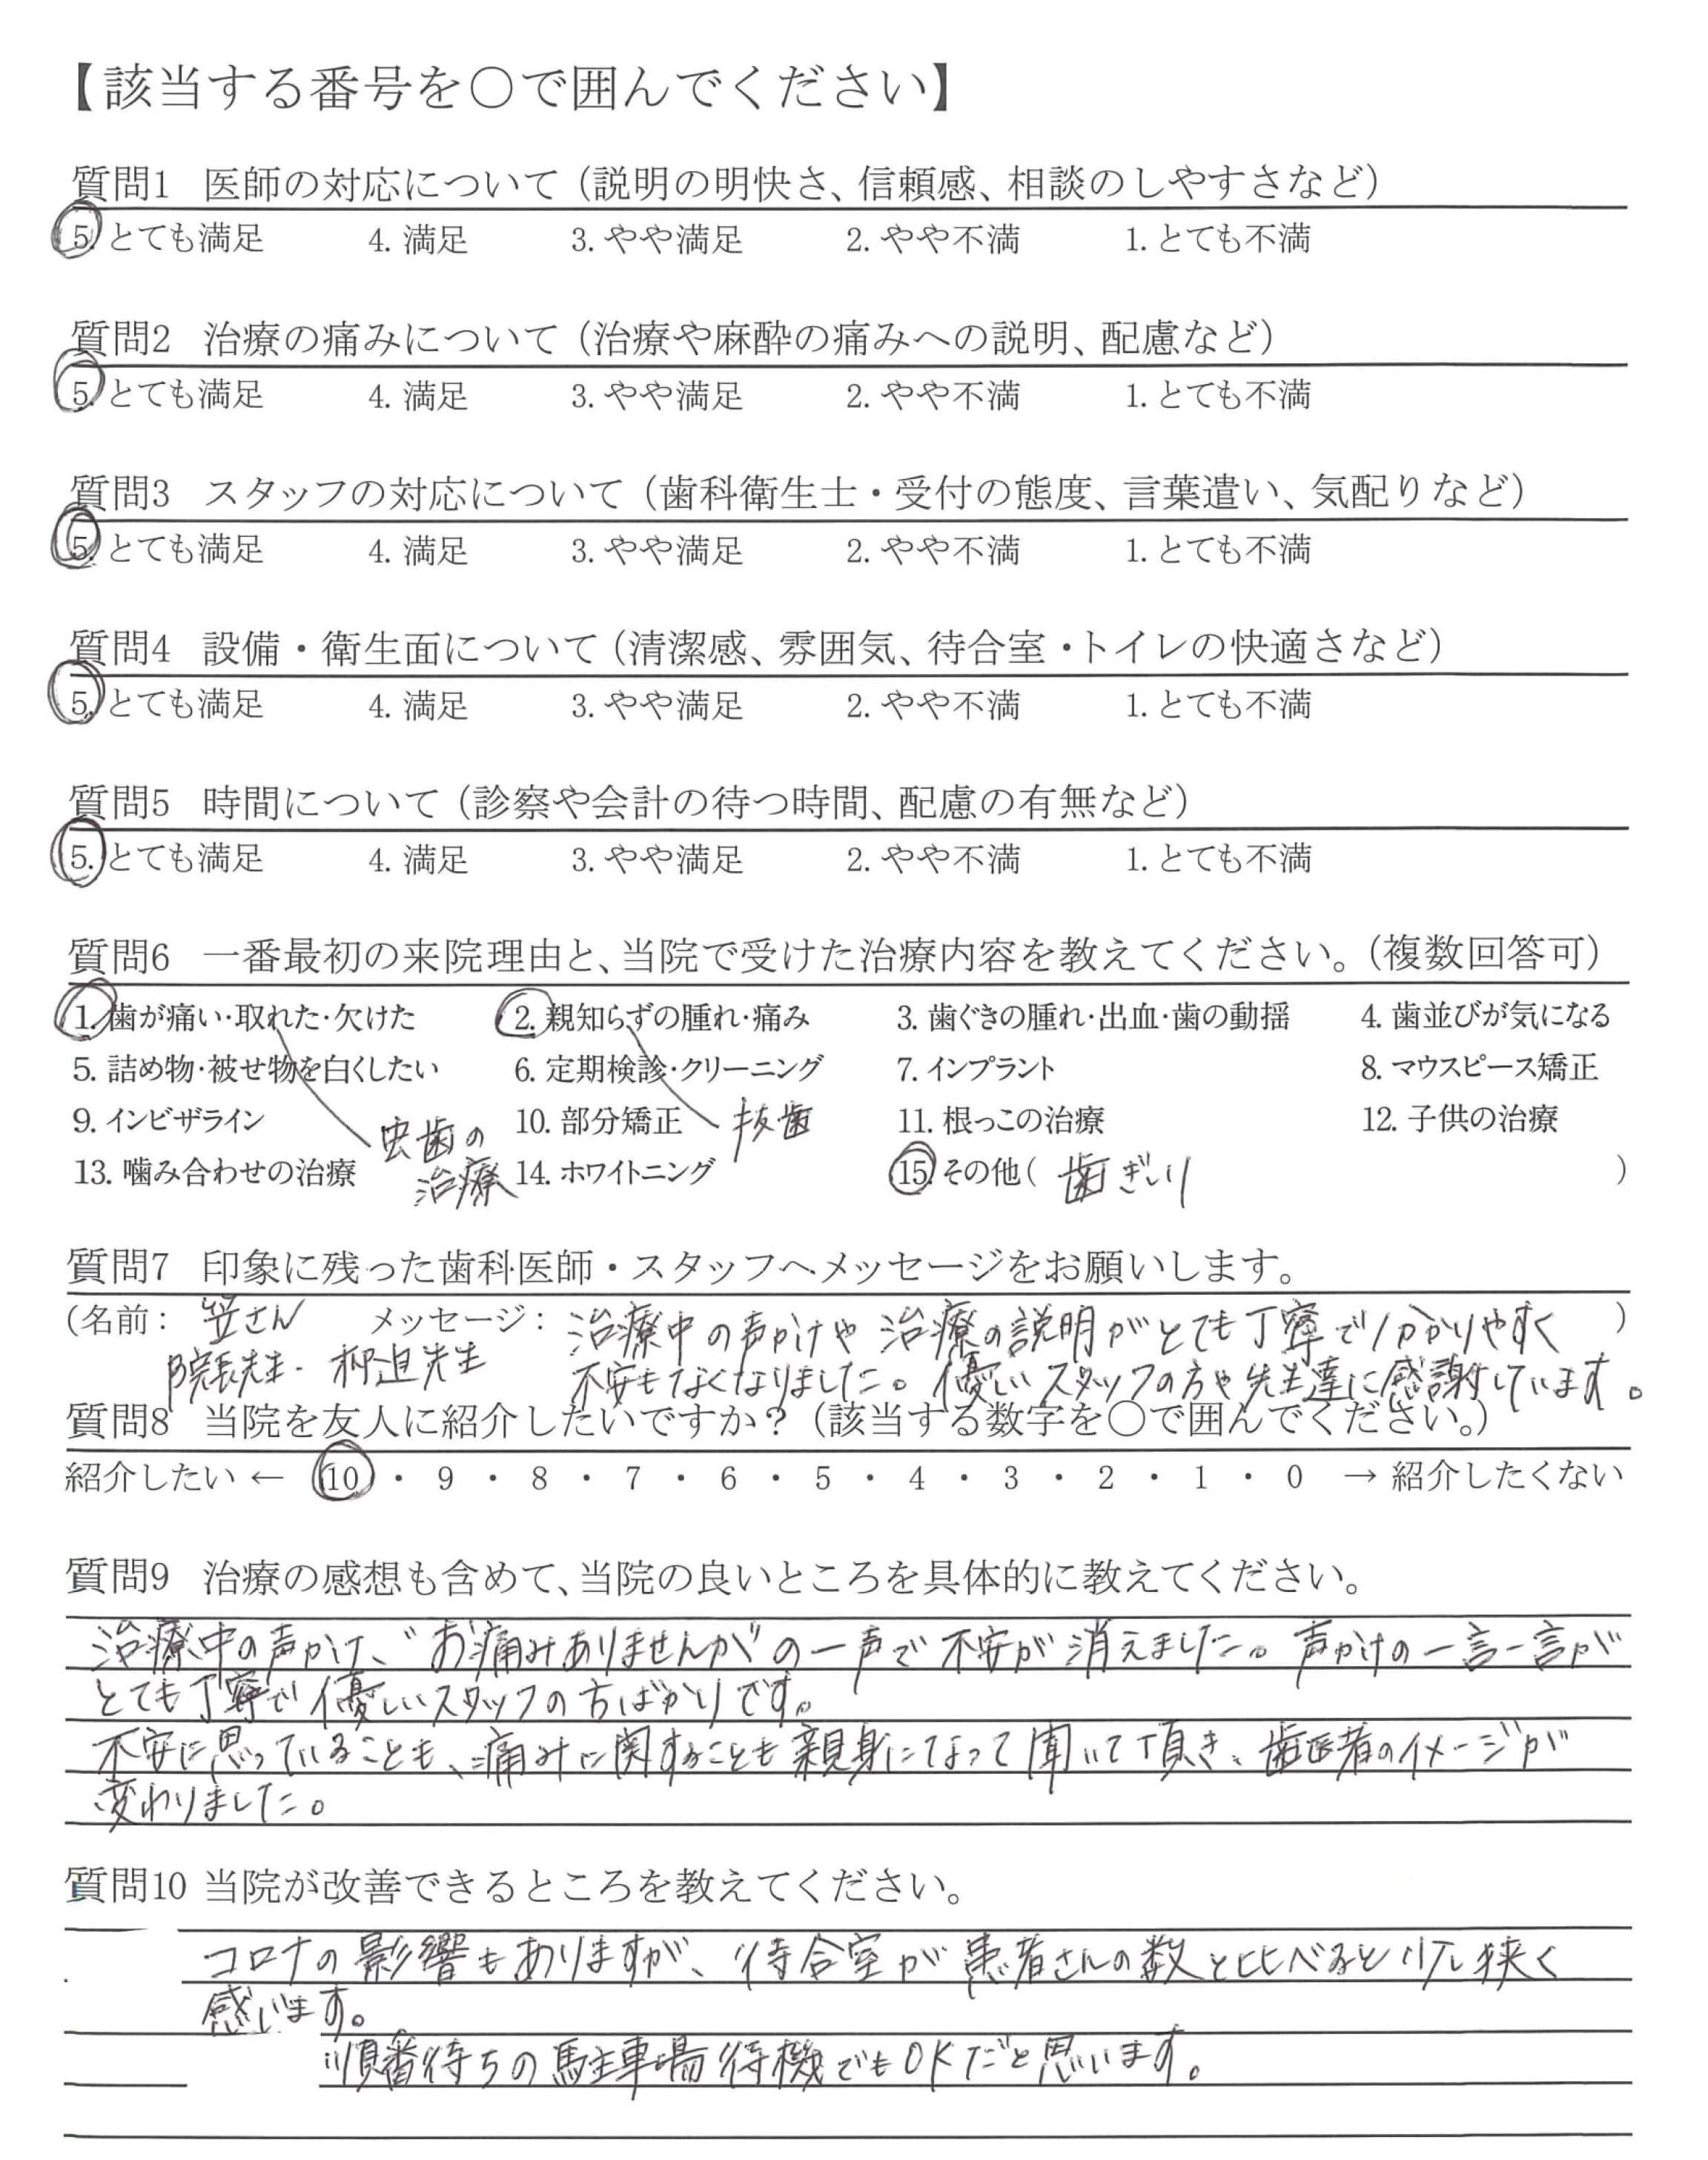 【該当する番号を○で囲んでください】
質問1 医師の対応について（説明の明快さ、信頼感、相談のしやすさなど）
5. とても満足 4. 満足 3. やや満足 2. やや不満 1. とても不満
質問2 治療の痛みについて（治療や麻酔の痛みへの説明、配慮など）
5. とても満足 4. 満足 3. やや満足 2. やや不満 1. とても不満
質問3 スタッフの対応について（歯科衛生士・受付の態度、言葉遣い、気配りなど）
5. とても満足 4. 満足 3. やや満足 2. やや不満 1. とても不満
質問4 設備・衛生面について（清潔感、雰囲気、待合室・トイレの快適さなど）
5. とても満足 4. 満足 3. やや満足 2. やや不満 1. とても不満
質問5 時間について（診察や会計の待つ時間、配慮の有無など）
5. とても満足 4. 満足 3. やや満足 2. やや不満 1. とても不満
質問6 一番最初の来院理由と、当院で受けた治療内容を教えてください。（複数回答可）
1. 歯が痛い・取れた・欠けた 2. 親知らずの腫れ・痛み 3. 歯ぐきの腫れ・出血・歯の動揺 4. 歯並びが気になる
5. 詰め物・被せ物を白くしたい 6. 定期検診・クリーニング 7. インプラント 8. マウスピース矯正
9. インビザライン 虫歯の 10. 部分矯正 抜歯 11. 根っこの治療 12. 子供の治療
13. 噛み合わせの治療 治療 14. ホワイトニング 15. その他（ 歯ぎしり ）
質問7 印象に残った歯科医師・スタッフへメッセージをお願いします。
（名前： さん メッセージ： 治療中の声かけや 治療の説明がとても丁寧で分かりやすく ）
院長先生・柳迫先生 不安もなくなりました。優しいスタッフの方や先生達に感謝しています。
質問8 当院を友人に紹介したいですか？（該当する数字を○で囲んでください。）
紹介したい ← 10 ・ 9 ・ 8 ・ 7 ・ 6 ・ 5 ・ 4 ・ 3 ・ 2 ・ 1 ・ 0 → 紹介したくない
質問9 治療の感想も含めて、当院の良いところを具体的に教えてください。
治療中の声かけ、“お痛みありませんか”の一声で不安が消えました。声かけの一言一言が
とても丁寧で優しいスタッフの方ばかりです。
不安に思っていることも、痛みに関することも親身になって聞いて頂き、歯医者のイメージが
変わりました。
質問10 当院が改善できるところを教えてください。
コロナの影響もありますが、待合室が患者さんの数と比べると少し狭く
感じます。
順番待ちの駐車場待機でもOKだと思います。